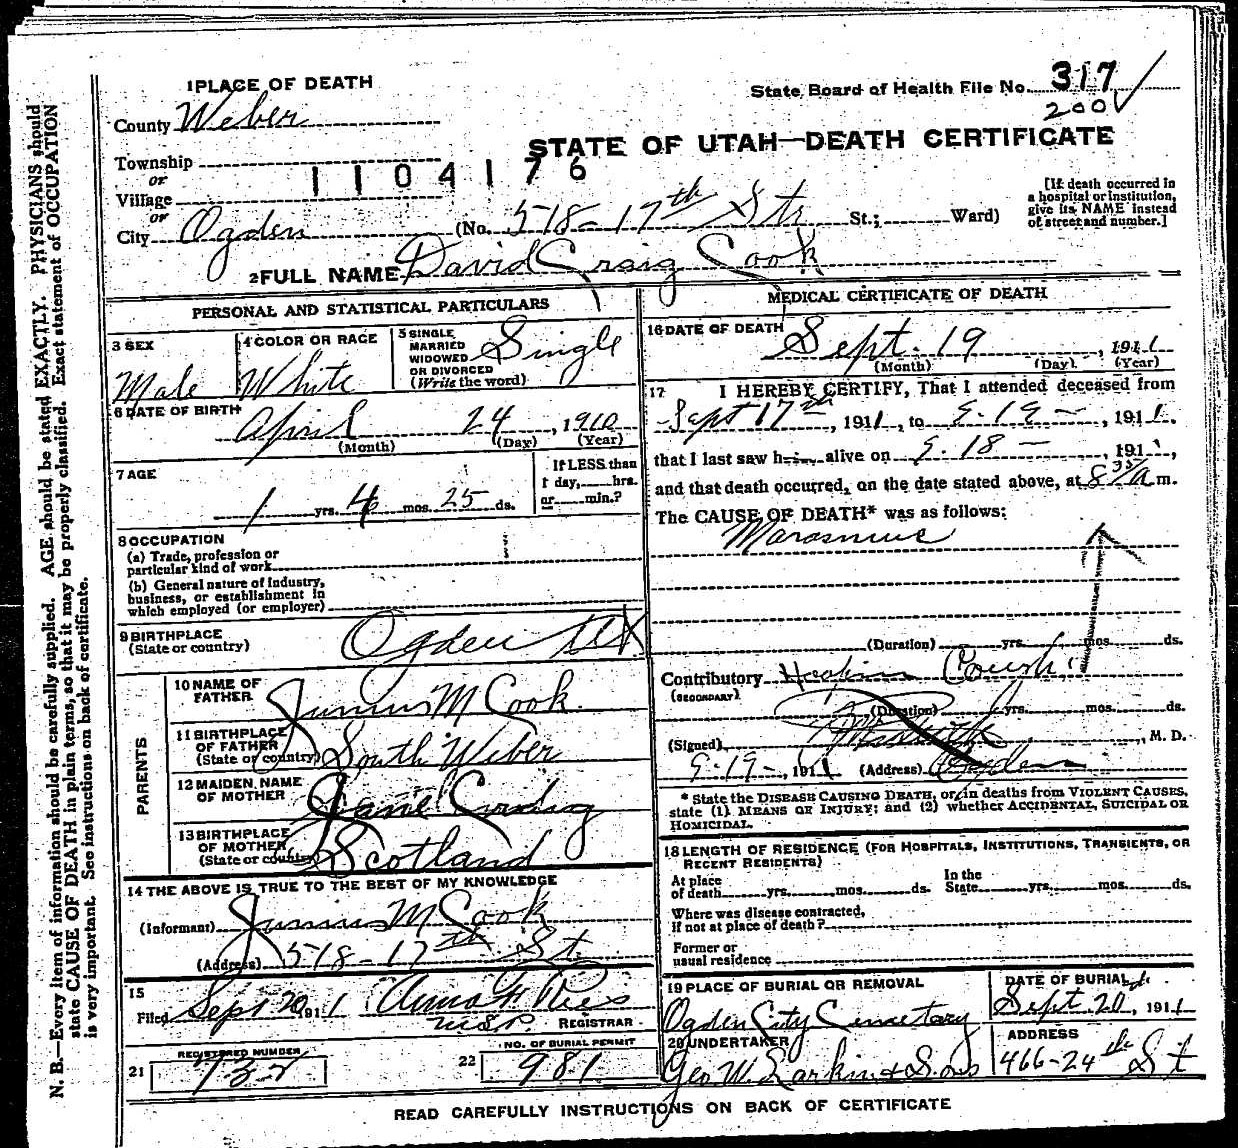 1 PLACE OF DEATH
State Board of Health File No. 317
200
County Weber
STATE OF UTAH—DEATH CERTIFICATE
Township
1104176
or
Village
or
City Ogden (No. 518-17th Str St.; Ward)
[If death occurred in
a hospital or institution,
give its NAME instead
of street and number.]
2 FULL NAME David Craig Cook
PERSONAL AND STATISTICAL PARTICULARS
3 SEX
Male
4 COLOR OR RACE
White
5 SINGLE
MARRIED
WIDOWED
OR DIVORCED
(Write the word)
Single
6 DATE OF BIRTH
April 24, 1910
(Month) (Day) (Year)
7 AGE
1 yrs. 4 mos. 25 ds.
If LESS than
1 day, hrs.
or min.?
8 OCCUPATION
(a) Trade, profession or
particular kind of work
(b) General nature of industry,
business, or establishment in
which employed (or employer)
9 BIRTHPLACE
(State or country)
Ogden
PARENTS
10 NAME OF
FATHER
Junius M Cook
11 BIRTHPLACE
OF FATHER
(State or country)
South Weber
12 MAIDEN NAME
OF MOTHER
Jane
13 BIRTHPLACE
OF MOTHER
(State or country)
Scotland
14 THE ABOVE IS TRUE TO THE BEST OF MY KNOWLEDGE
(Informant) Junius M Cook
(Address) 518-17th St.
15
Filed Sept 20 1911 Anna
REGISTRAR
21 REGISTERED NUMBER
732
22 NO. OF BURIAL PERMIT
981
MEDICAL CERTIFICATE OF DEATH
16 DATE OF DEATH
Sept. 19, 1911
(Month) (Day) (Year)
17 I HEREBY CERTIFY, That I attended deceased from
Sept 17th, 1911, to 9-19-, 1911,
that I last saw him alive on 9-18-, 191,
and that death occurred, on the date stated above, at 8 35/a m.
The CAUSE OF DEATH* was as follows:
Marasmus
(Duration) yrs. mos. ds.
Contributory Cough
(SECONDARY)
(Duration) yrs. mos. ds.
(Signed), M. D.
9-19-, 1911 (Address) Ogden
* State the DISEASE CAUSING DEATH, or, in deaths from VIOLENT CAUSES,
state (1) MEANS OF INJURY; and (2) whether ACCIDENTAL, SUICIDAL OR
HOMICIDAL.
18 LENGTH OF RESIDENCE (FOR HOSPITALS, INSTITUTIONS, TRANSIENTS, OR
RECENT RESIDENTS)
At place
of death yrs. mos. ds.
In the
State yrs. mos. ds.
Where was disease contracted,
if not at place of death?
Former or
usual residence
19 PLACE OF BURIAL OR REMOVAL
Ogden City Cemetary
DATE OF BURIAL
Sept. 20, 1911
20 UNDERTAKER
Geo W. Larkin & Sons
ADDRESS
466-24th St
READ CAREFULLY INSTRUCTIONS ON BACK OF CERTIFICATE
N. B.—Every item of information should be carefully supplied. AGE should be stated EXACTLY. PHYSICIANS should
state CAUSE OF DEATH in plain terms, so that it may be properly classified. Exact statement of OCCUPATION
is very important. See instructions on back of certificate.